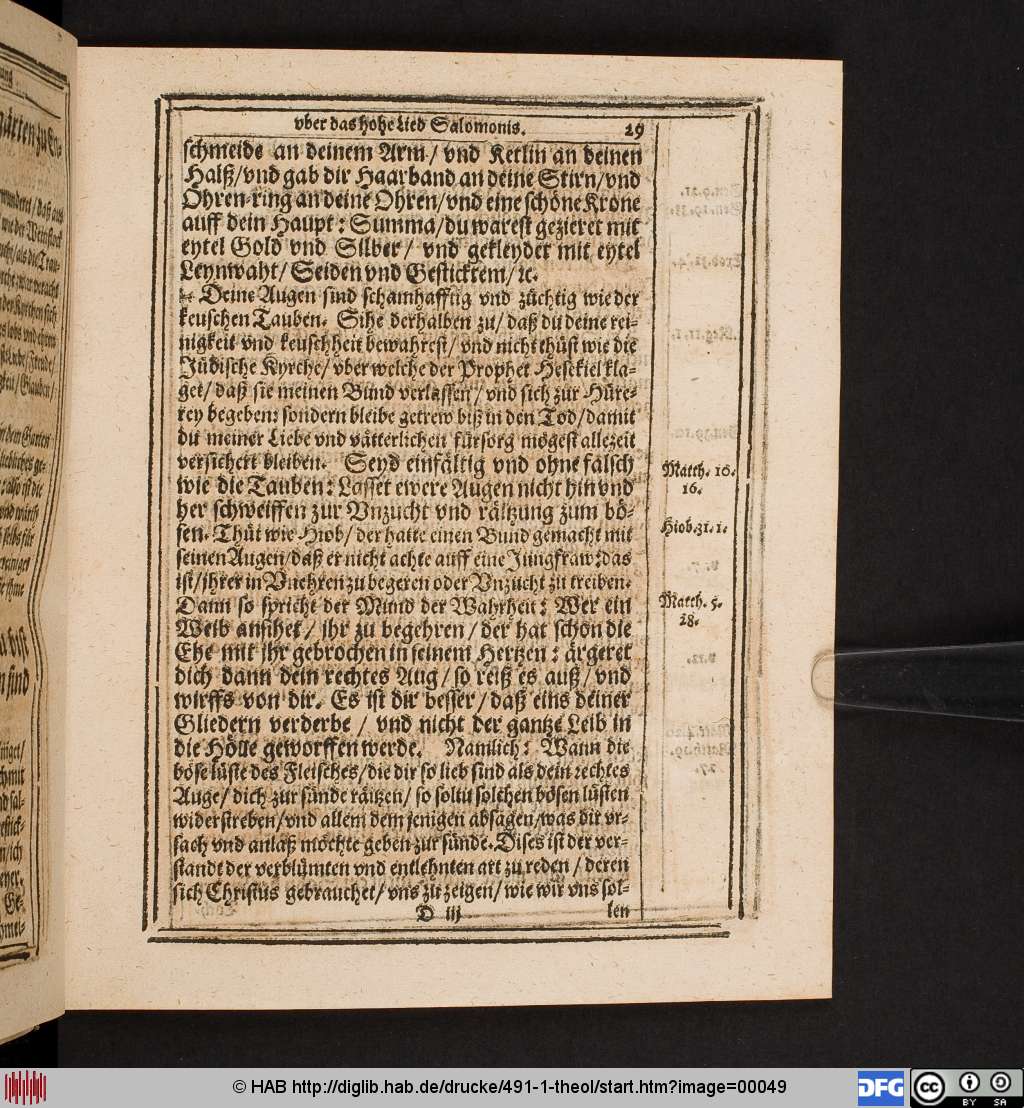 vber das hohe Lied Salomonis. 29
schmeide an deinem Arm / vnd Ketlin an deinen
Halß / vnd gab dir Haarband an deine Stirn / vnd
Ohren-ring an deine Ohren / vnd eine schöne Krone
auff dein Haupt : Summa / du warest gezieret mit
eytel Gold vnd Silber / vnd gekleydet mit eytel
Leynwaht / Seiden vnd Gesticktem / ꝛc.
Deine Augen sind schamhafftig vnd züchtig wie der
keuschen Tauben. Sihe derhalben zu / daß du deine rei-
nigkeit vnd keuschheit bewahrest / vnd nicht thüst wie die
Jüdische Kyrche / vber welche der Prophet Hesekiel kla-
get / daß sie meinen Bund verlassen / vnd sich zur Hüre-
rey begeben: sondern bleibe getrew biß in den Tod / damit
du meiner Liebe vnd vätterlichen fürsorg mögest allezeit
versichert bleiben. Seyd einfältig vnd ohne falsch
wie die Tauben : Lasset ewere Augen nicht hin vnd
her schweiffen zur Vnzucht vnd räitzung zum bö-
sen. Thüt wie Hiob / der hatte einen Bund gemacht mit
seinen Augen / daß er nicht achte auff eine Jungfraw: das
ist / ihrer in Vnehren zu begeren oder Vnzucht zu treiben.
Dann so spricht der Mund der Wahrheit : Wer ein
Weib ansihet / ihr zu begehren / der hat schon die
Ehe mit ihr gebrochen in seinem Hertzen : ärgeret
dich dann dein rechtes Aug / so reiß es auß / vnd
wirffs von dir. Es ist dir besser / daß eins deiner
Gliedern verderbe / vnd nicht der gantze Leib in
die Hölle geworffen werde. Namlich : Wann die
böse lüste des Fleisches / die dir so lieb sind als dein rechtes
Auge / dich zur sünde räitzen / so soltu solchen bösen lüsten
widerstreben / vnd allem dem jenigen absagen / was dir vr-
sach vnd anlaß möchte geben zur sünde. Dises ist der ver-
standt der verblümten vnd entlehnten art zu reden / deren
sich Christus gebrauchet / vns zu zeigen / wie wir vns sol-
D iij len
Matth. 10.
16.
Hiob. 31. 1.
Matth. 5.
28.
© HAB http://diglib.hab.de/drucke/491-1-theol/start.htm?image=00049
DFG
cc
BY SA